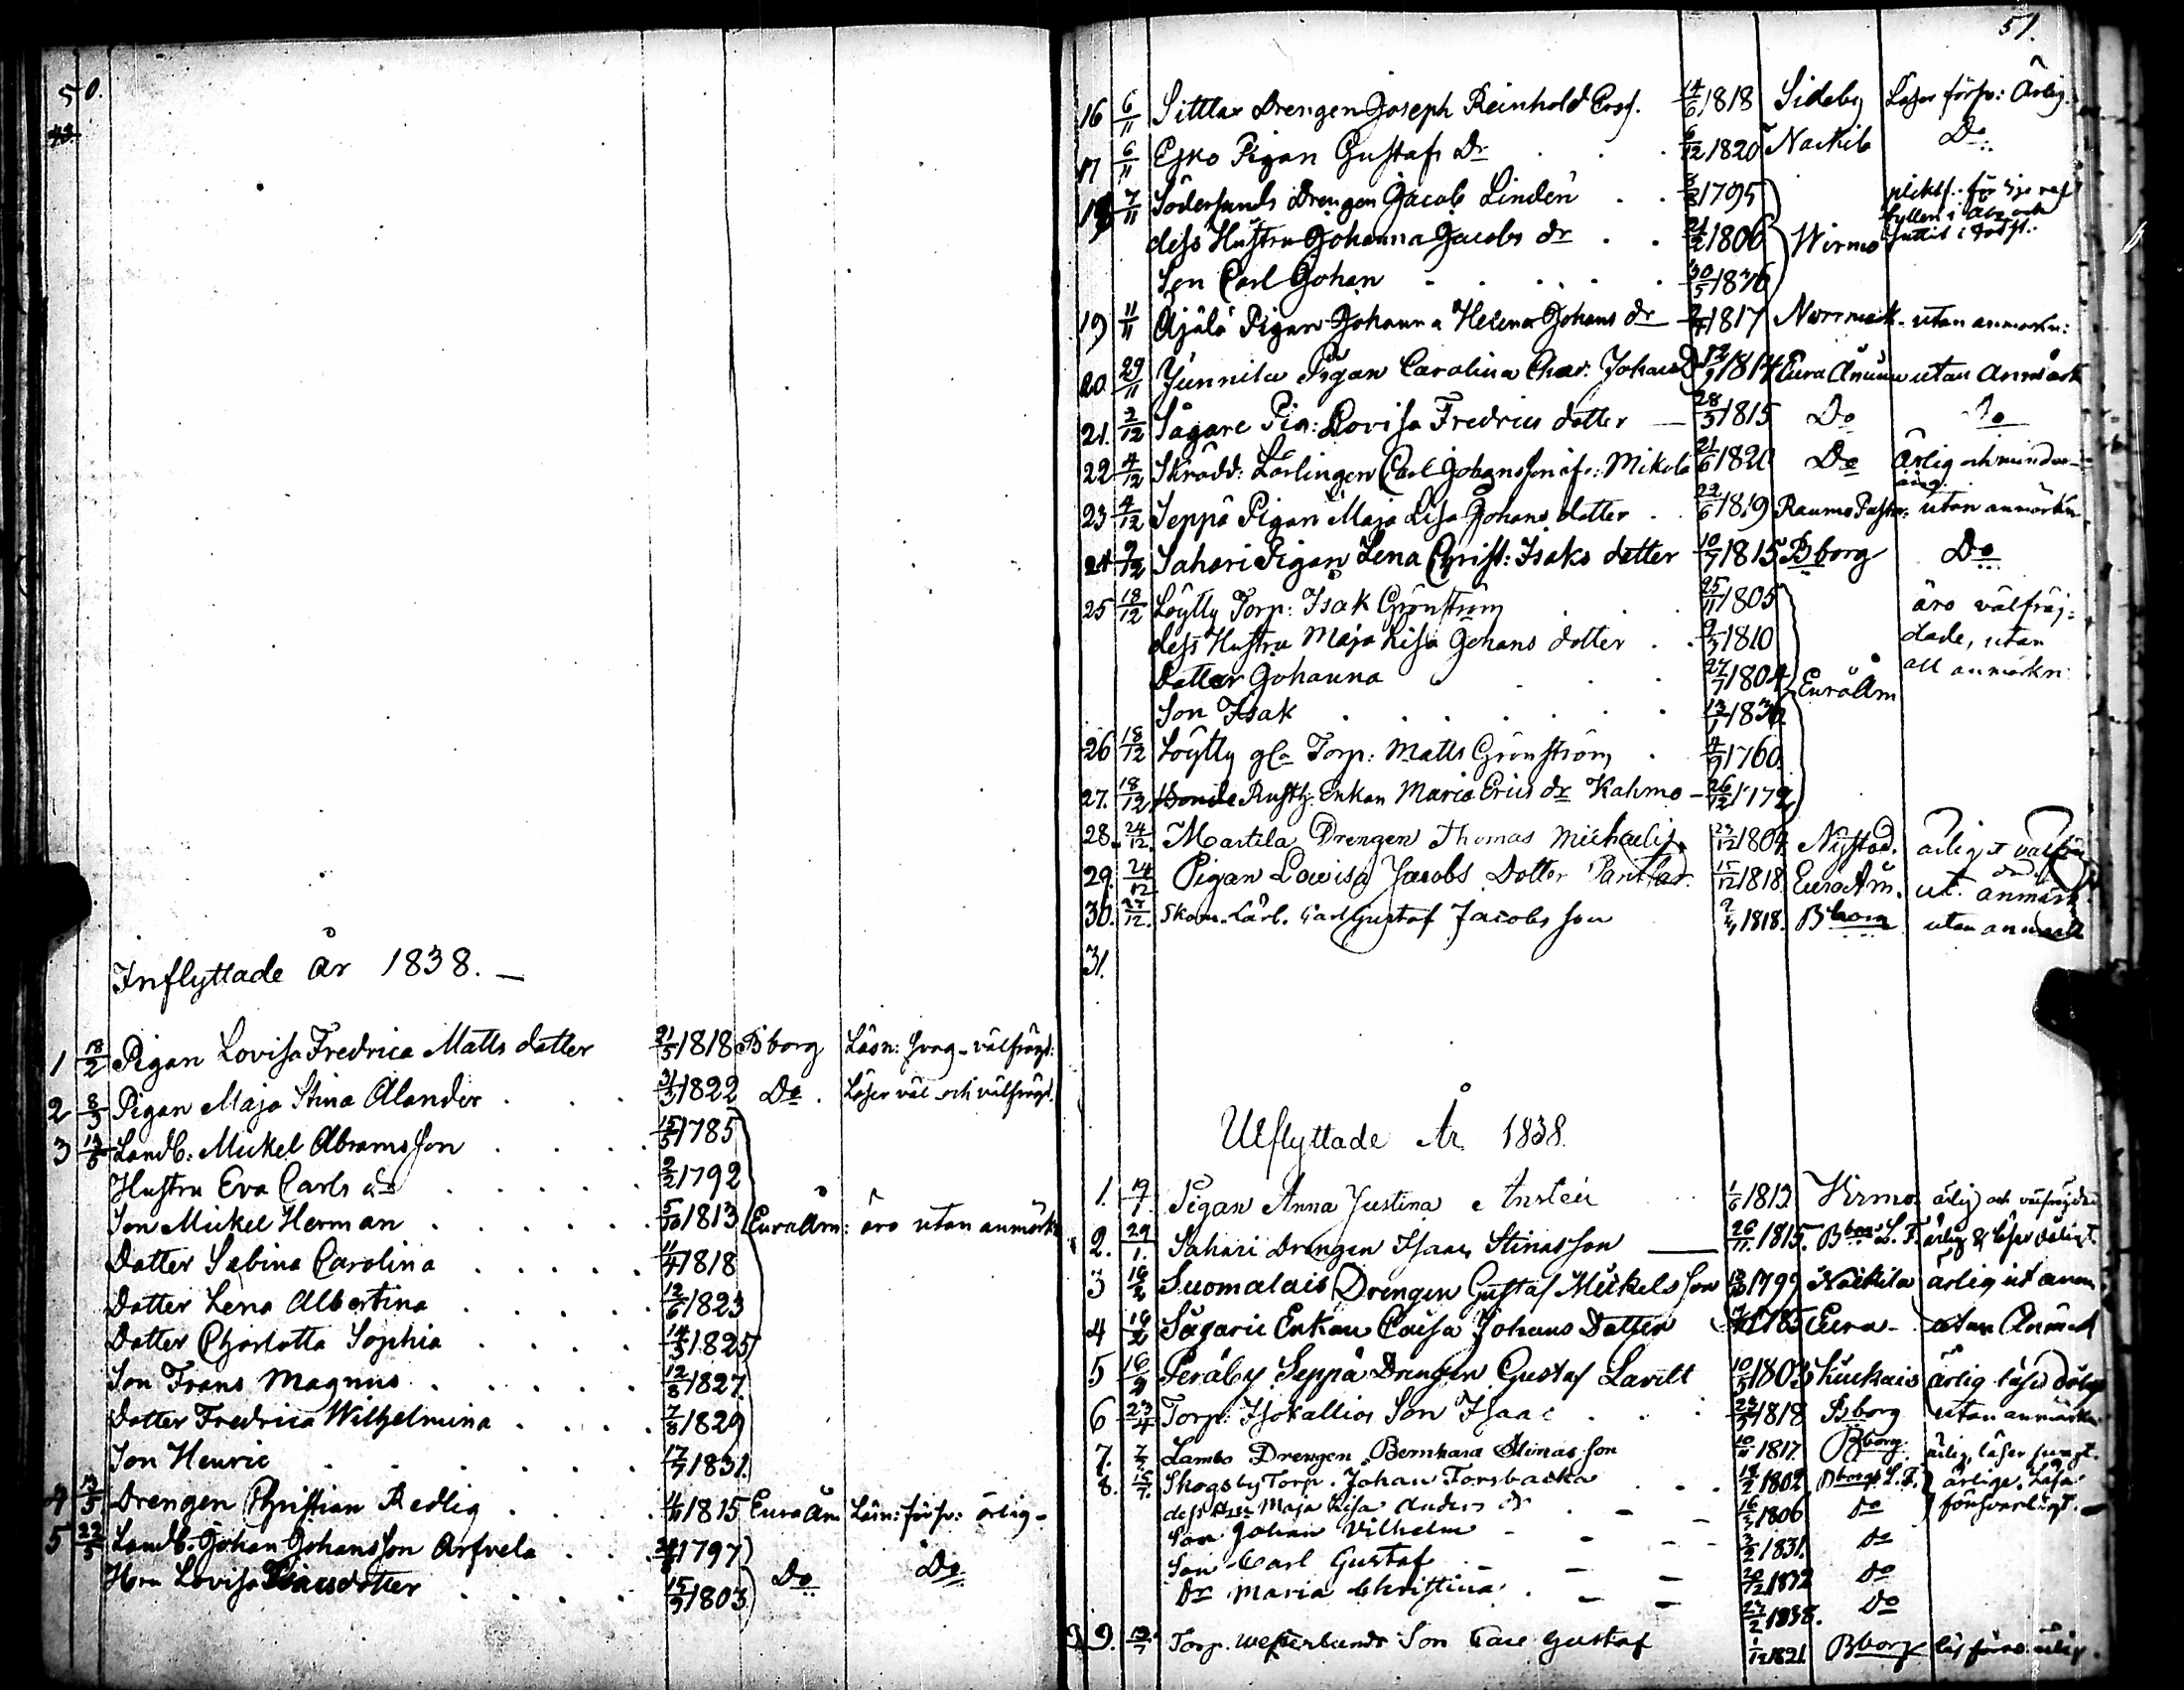 50.
43.
Inflyttade år 1838. —
1 18/2 Pigan Lovisa Fredrica Matts dotter 21/5 1818 Bborg Läsn: svag - välfrägd:
2 8/3 Pigan Maja Stina Alander . . . 31/3 1822 Do . Läser väl och välfrägd.
3 13/5 Landb: Mickel Abramsson . . . . 15/5 1785
Hustru Eva Carls dr . . . . . 2/2 1792
Son Mickel Herman . . . . . 5/10 1813 Eura Åm: äro utan anmärkn
Dotter Sabina Carolina . . . . . 11/4 1818
Dotter Lena Albertina . . . . . 12/6 1823
Dotter Charlotta Sophia . . . . 14/3 1825
Son Frans Magnus . . . . . 12/8 1827
Dotter Fredrica Wilhelmina . . . . 7/8 1829
Son Henric . . . . . . 17/7 1831
4 13/5 Drengen Christian Redlig . . . . 4/11 1815 Eura Åm Läsn: försv: ärlig -
5 22/5 Landb: Johan Johansson Arfvela . . . 1797
Hru Lovisa Isacsdotter . . . . 15/3 1803 Do Do
51.
16 6/11 Sittlax Drengen Joseph Reinhold Ersf. 14/6 1818 Sideby Läser försv: Ärlig.
17 6/11 Esko Pigan Gustafs Dr . . . 6/12 1820 Nackila Do
18 7/11 Södersunds Drengen Jacob Lindén . . 1795 pliktf. för
fylleri i Åbo och
dess Hustru Johanna Jacobs dr . . 21/2 1806 Wirmo
Son Carl Johan . . . . . 30/5 1836
19 11/11 Äijälä Pigan Johanna Helena Johans dr 1817 Norrmark - utan anmärkn:
20 29/11 Junnila Pigan Carolina Char: Johans Dr 1814 Eura Åminne utan Anmärk
21. 2/12 Sågare Pig: Lovisa Fredrics dotter — 28/3 1815 Do Do
22 4/12 Skrädd: Lärlingen Carl Johansson ifr: Mikola 21/6 1820 Do Ärlig och minder-
årig.
23 4/12 Seppä Pigan Maja Lisa Johans dotter . 22/6 1819 Raumo Pastor: utan anmärkn
24 9/12 Sahari Pigan Lena Christ: Isaks dotter 10/7 1815 Bborg Do
25 18/12 Löytty Torp: Isak Grönström . . . 25/11 1805 äro välfräj-
dess Hustru Maja Lisa Johans dotter . . 9/3 1810 dade, utan
Dotter Johanna . . . 27/7 1804 Eura Åm all anmärkn:
Son Isak . . . . . . . 13/1 1836
26 18/12 Löytty gla Torp: Matts Grönström . 4/9 1760
27. 18/12 Bonde Rusth. Enkan Maria Erics dr Kahmo - 26/12 177
28. 24/12. Martila Drengen Thomas Michaelis 1804 Nystad. ärlig & välfrä
29. 24/12 Pigan Lowisa Jacobs Dotter 15/12 1818 Eura Åm. ut. anmärk.
30. 27/12. Skom. Lärl. Carl Gustaf Jacobsson 1818. Bborg utan anmärk
31.
Utflyttade År 1838.
1. 19/1. Pigan Anna Justina 1/6 1813. Virmo ärlig och välfräjdad
2. 29/1. Sahari Drengen Isaac Stinasson — 26/11. 1815. Bborgs L. F. ärlig & läser dåligt.
3 16/2 Suomalais Drengen Gustaf Mickelsson 1799 Nackila ärlig ut anm
4 16/2 Sågarie Enkan Caisa Johans Dotter 1785 Eura - utan Anmärk
5 16/2 Peräby Seppä Drengen Gustaf Lavill 10/5 1803 Kiukais ärlig läser dålig
6 23/4 Torp: Isokallios Son Isaac . . . 23/5 1818 Bborg utan anmärkn
7. 7/7. Lambo Drengen Bernhard Stinasson 10/11 1817. Bborg. ärlig, läser svagt.
8. 15/7. Skogsby Torp. Johan Forsbacka . . 14/2 1802 Bborgs L. F. ärlige, läsa
dess Hru Maja Lisa Anders dr . - - 16/3 1806 do försvarligt.
Son Johan Vilhelm - - - 3/2 1831. do
Son Carl Gustaf - - - 20/12 1832 do
Dr Maria Christina . . - - 27/2 1838. Do
9. 19/7 Torp. Westerlunds Son Carl Gustaf 1/12 1821 Bborg läs försv. ärlig